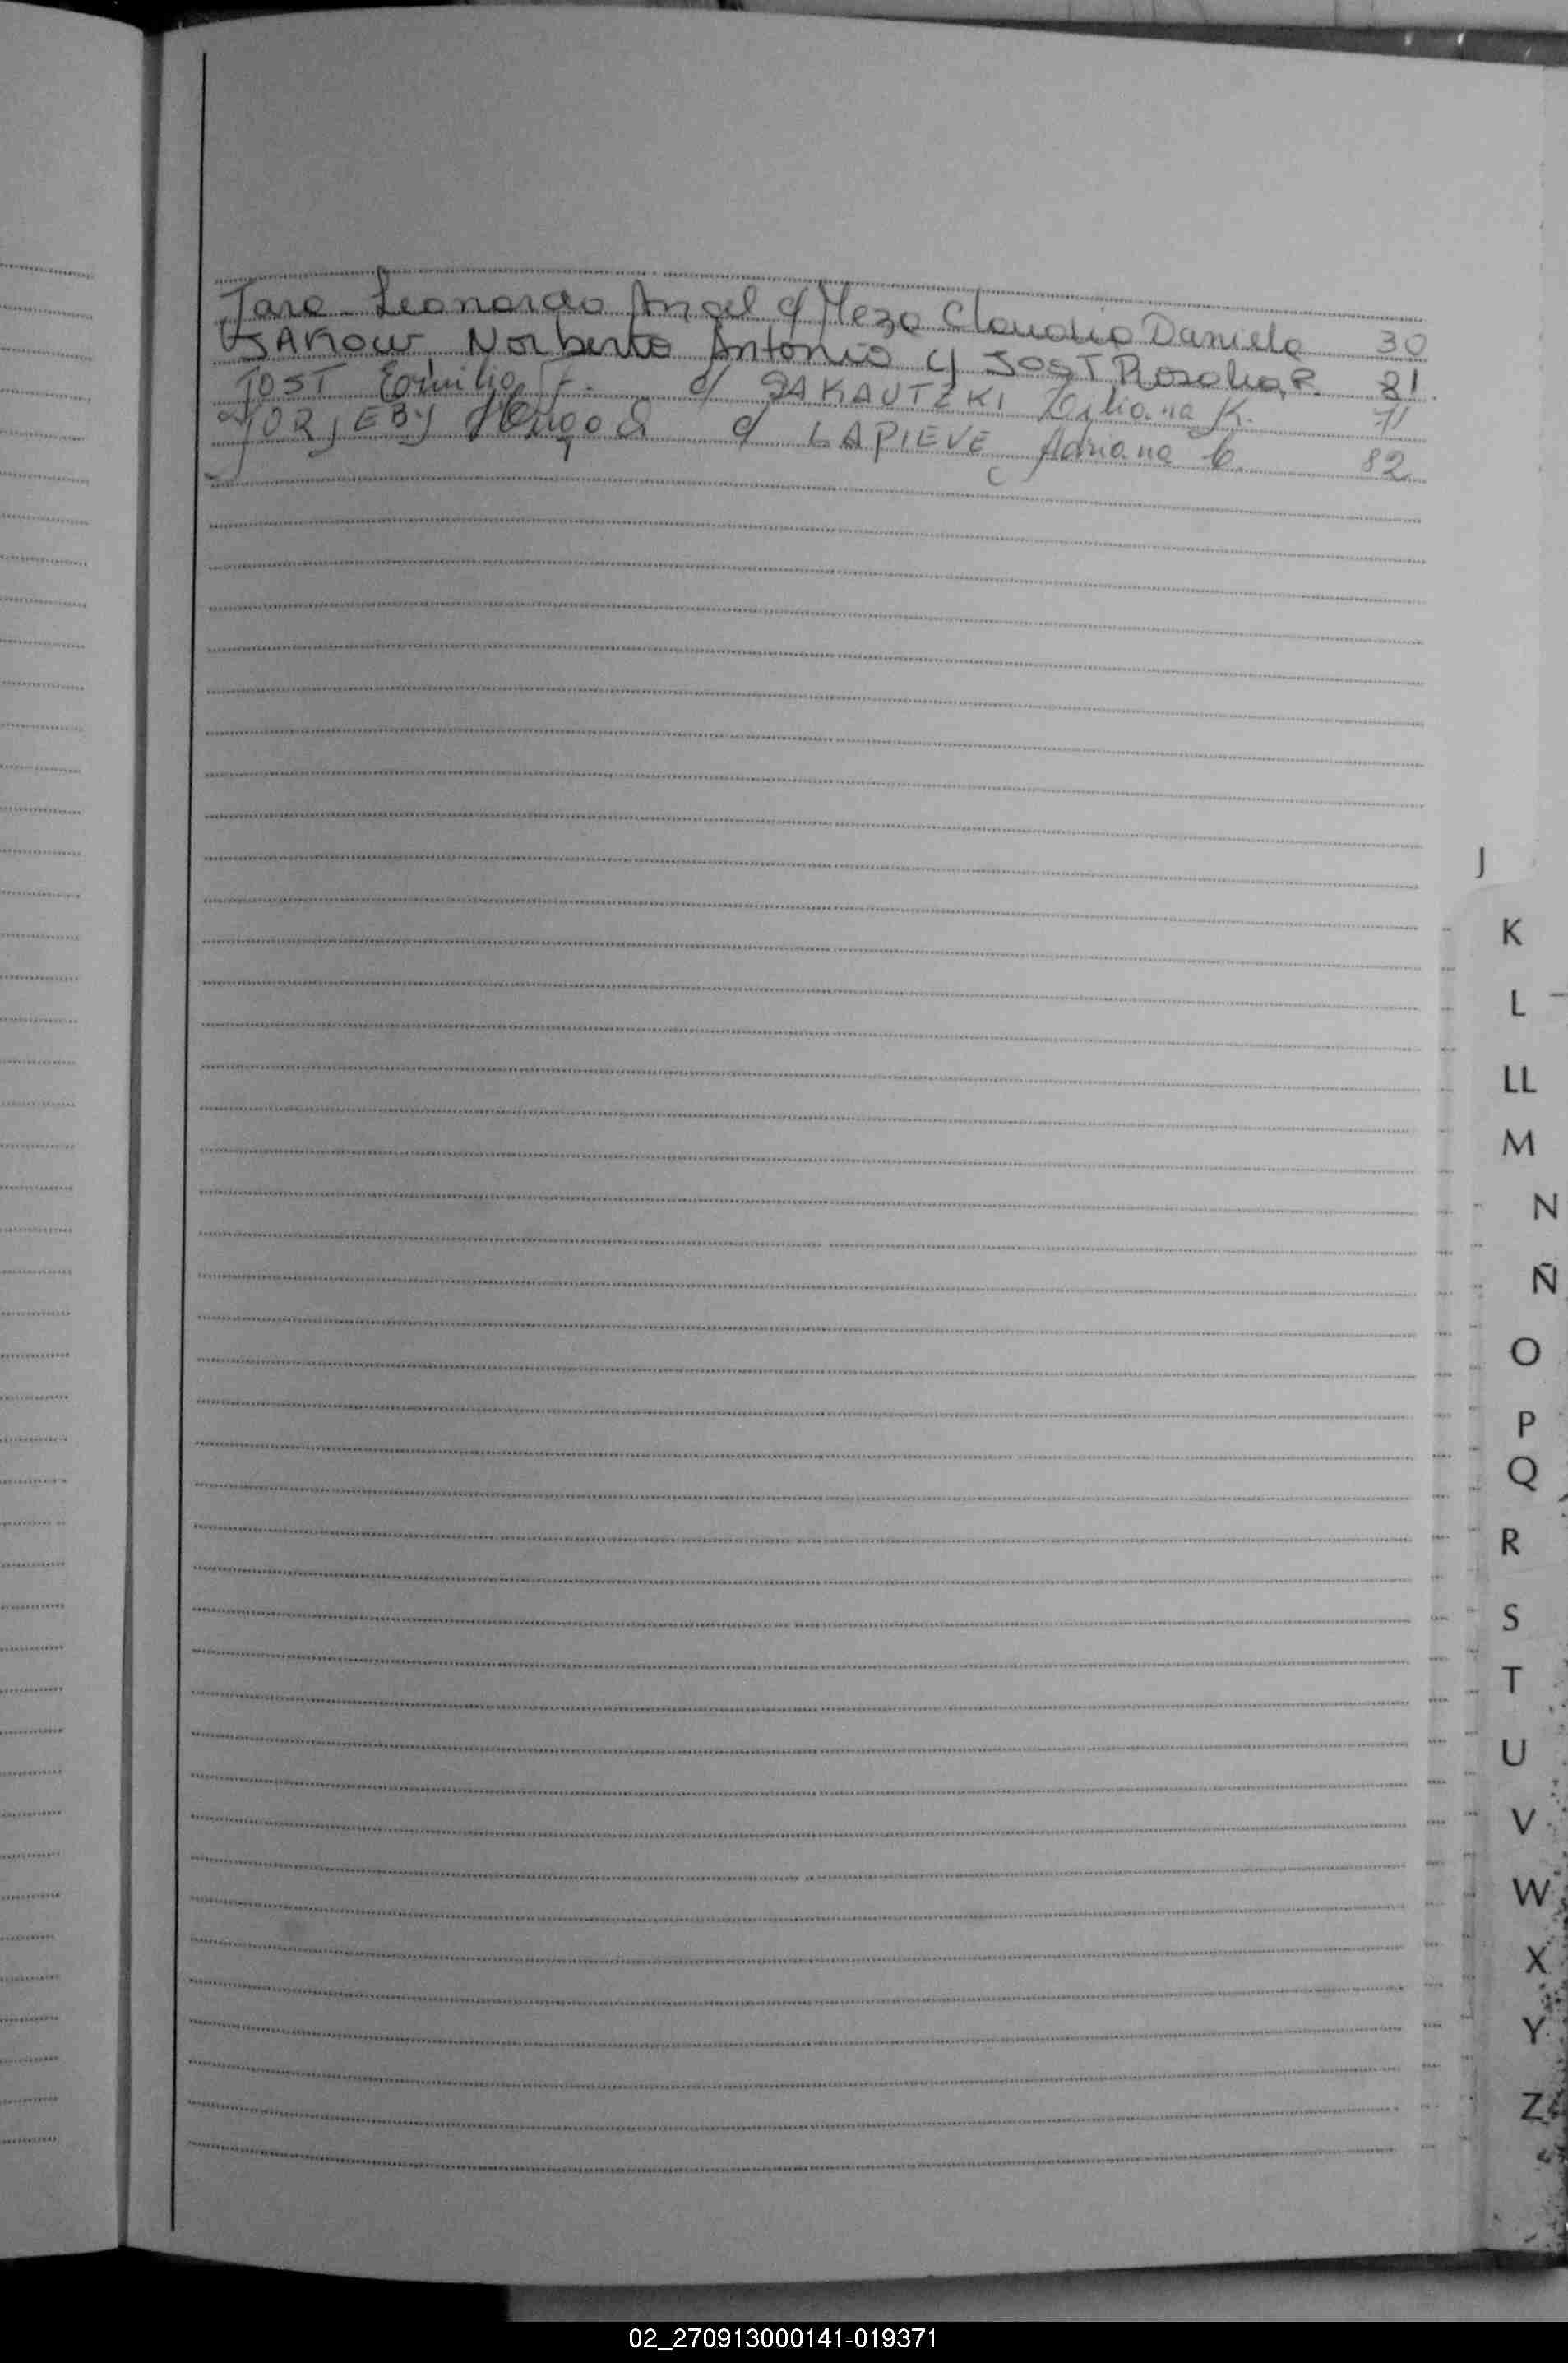 Jara Leonardo Angel c/ Meza Claudia Daniela 30
Norberto Antonio c/ JOST, Rosalia 81
JOST Emilio F. c/ SAKAUTZKI Liliana K. 71
Hugo c/ LAPIEVE Adriana C. 82
J
K
L
LL
M
N
Ñ
O
P
Q
R
S
T
U
V
W
X
Y
Z
02_270913000141-019371